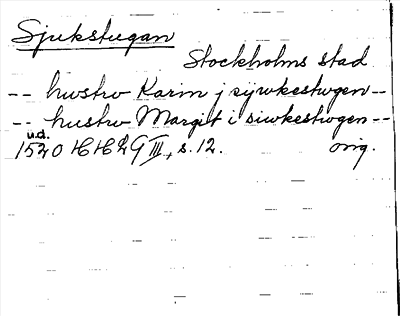 Sjukstugan
Stockholms stad
-- hwstrv Karin j sywkestwgen --
-- hustrv Margit i siwkestwgen --
u.d.
1520 HH29 III, s. 12. orig.